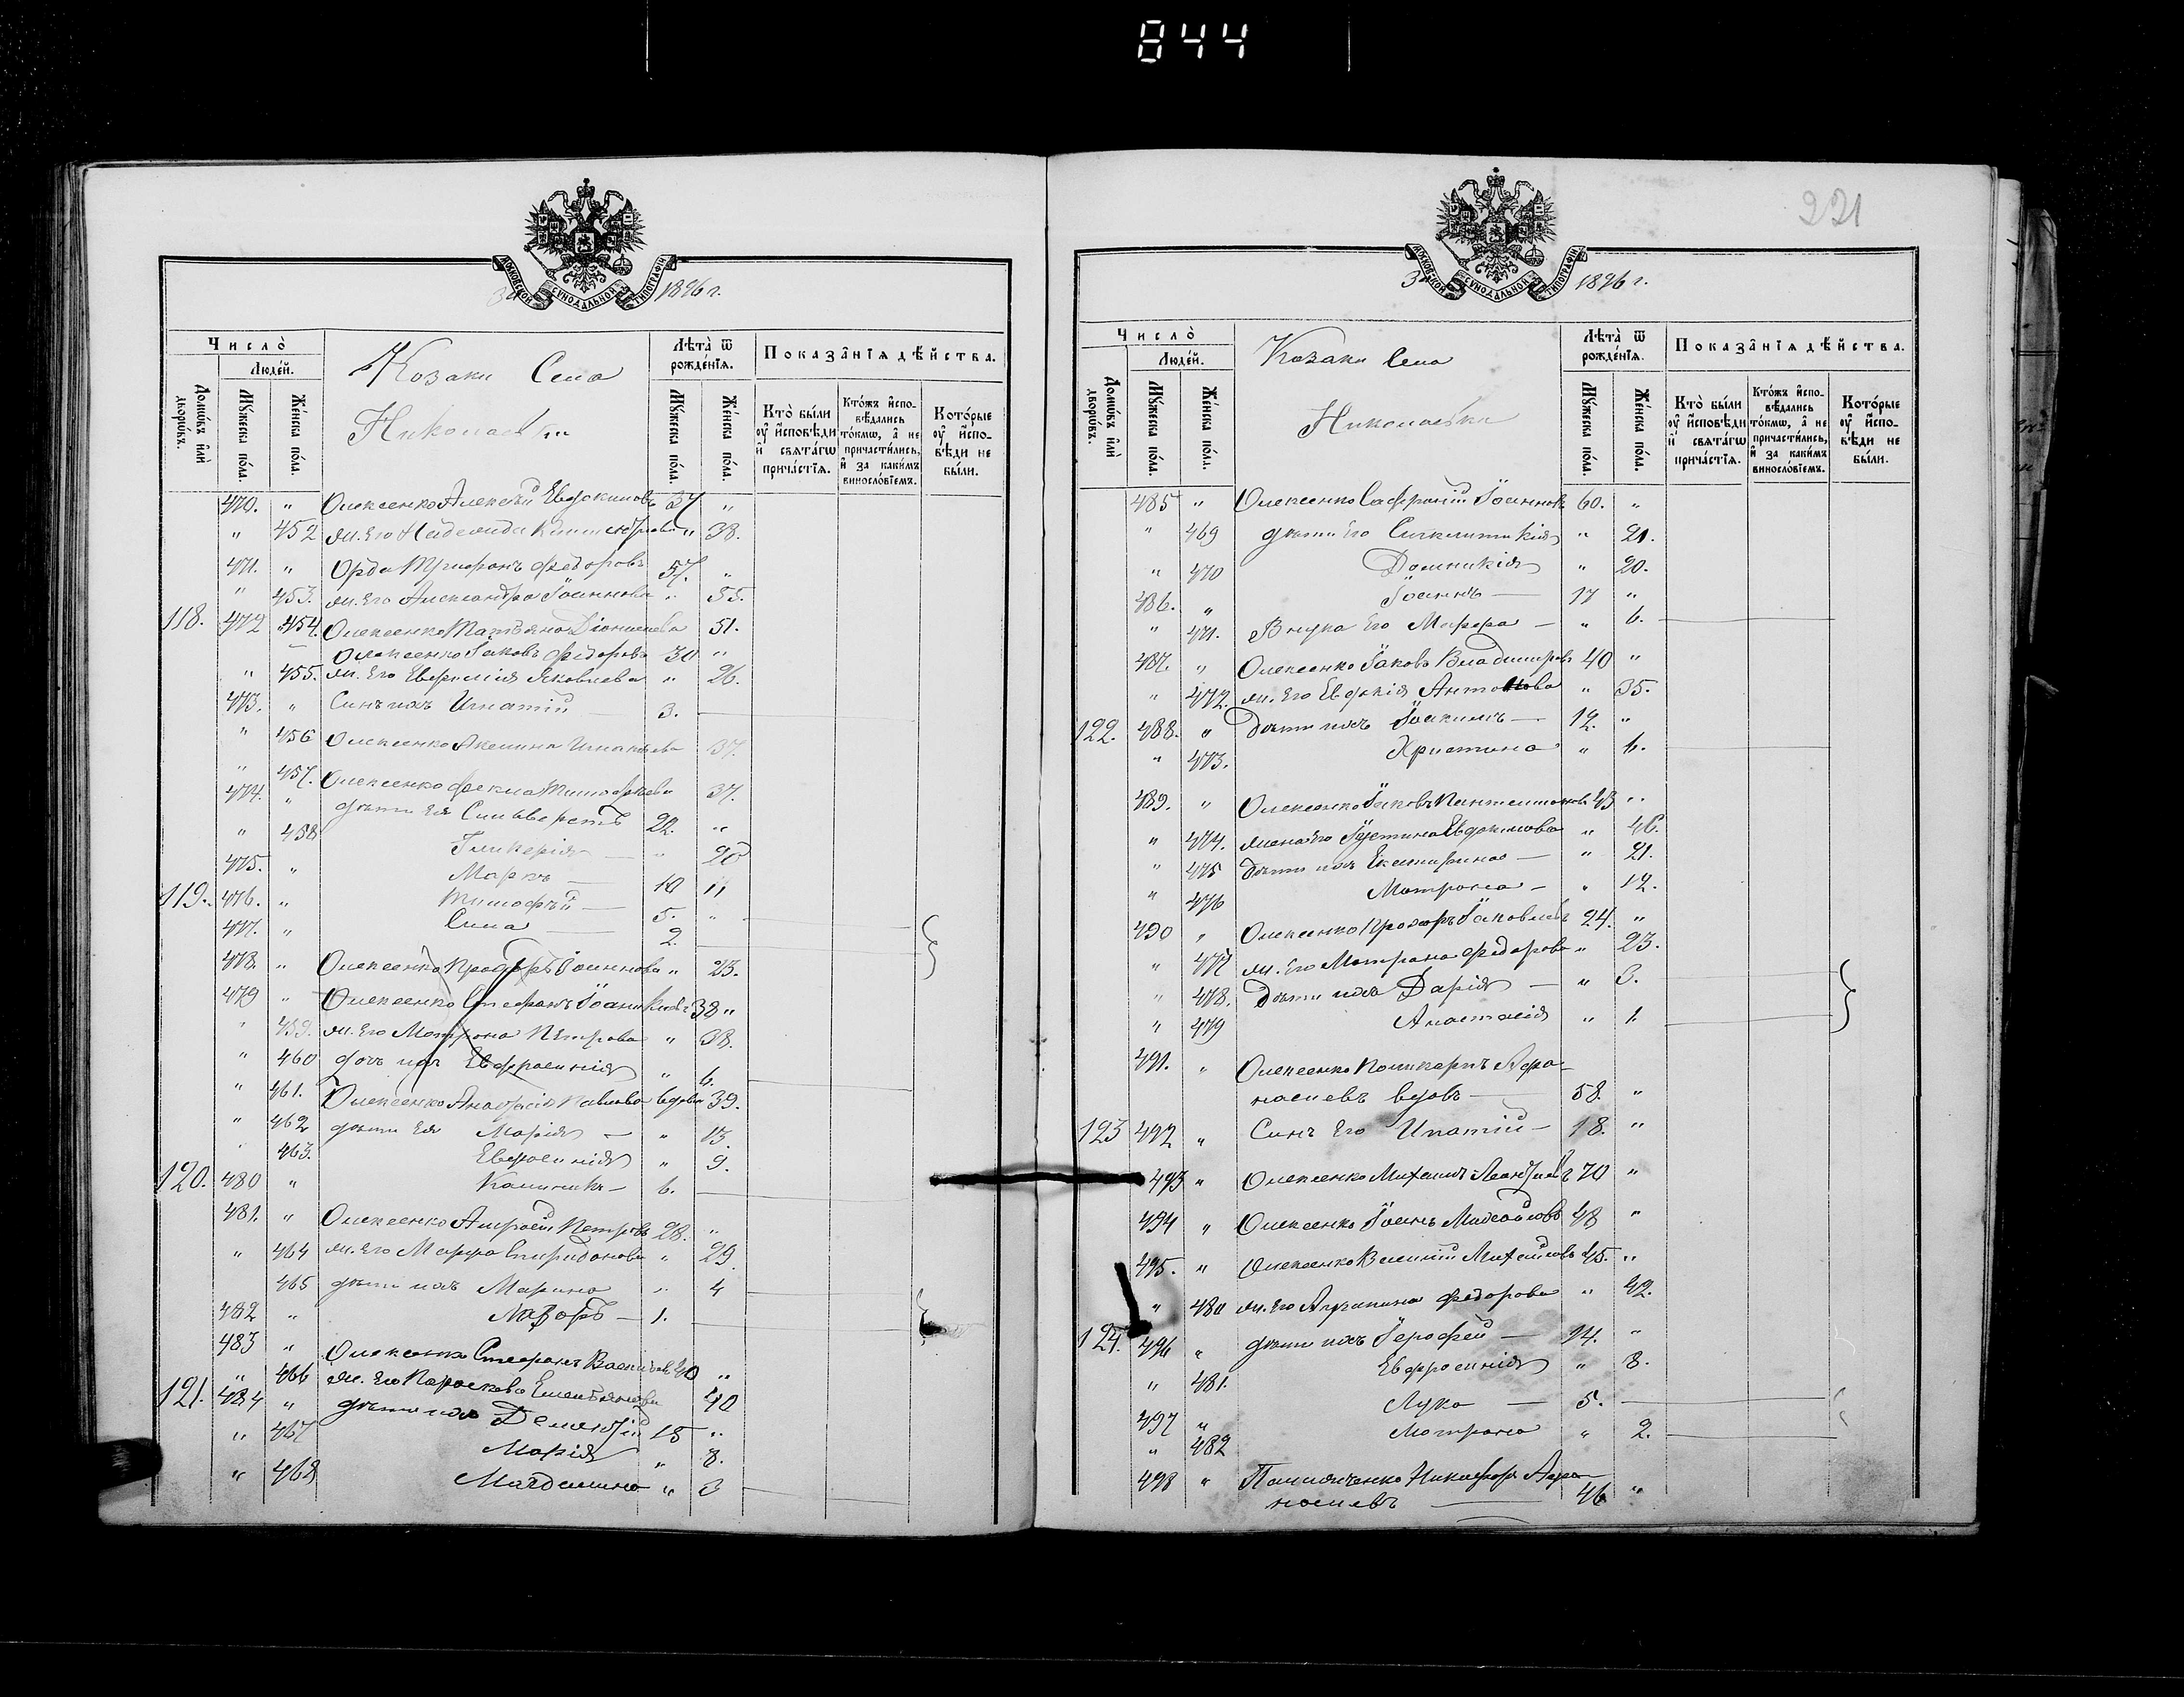 844
МОСКОВСКОЙ СѴНОДАЛЬНОЙ ТИПОГРАФІИ
За 1896 г.
Число̀
Домѡ́въ и҆лѝ дворѡ́въ.
Люде́й.
Мꙋ́жеска по́ла.
Же́нска по́ла.
Козаки Села
Николаевки
Лѣта̀ ѿ рожде́нїѧ.
Мꙋ́жеска по́ла.
Же́нска по́ла.
Показа̂нїѧ дѣ́йства.
Кто̀ бы́ли ᲂу҆ и҆сповѣ́ди и҆ свѧта́гѡ прича́стїѧ.
Кто́жъ и҆сповѣ́дались то́кмѡ, а҆ не причасти́лись, и҆ за каки́мъ винносло́вїемъ.
Кото́рые ᲂу҆ и҆сповѣ́ди не бы́ли.
470. " Олексенко Алексѣй Евдокимовъ 37 "
" 452 ж. его Надежда 38.
471. " Орда Трифонъ Федоровъ 57. "
" 453. ж. его Александра Іоаннова " 55.
118. 472 454. Олексенко Татьяна Діонисіева 51.
Олексенко Іаковъ Федоровъ 30 "
" 455. ж. его Евфимія Яковлева " 26.
473. " Синъ ихъ Игнатій 3.
" 456 Олексенко Акилина Игнатьева 37.
" 457. Олексенко Фекла Тимофѣева 37.
474. " дѣти ея Сильверстъ 22. "
" 458 Гликерія — " 20
475. " Маркъ — 10 "
119. 476. " Тимофѣй — 5. "
477. " Сила — 2.
478. " Олексенко Прохоръ Іоаннова " 23.
479 " Олексенко Стефанъ 38 "
" 459. ж. его Матрона Петрова " 38.
" 460 дочь ихъ Евфросинія " 4.
" 461. Олексенко Анастасія Павлова вдова 39.
" 462 дѣти ея Марія — " 13.
" 463. Евфросинія " 9.
120. 480 " Калиникъ — 6.
481. " Олексенко Амвросій Петровъ 28. "
" 464 ж. его Марфа Спиридонова " 29.
465 дѣти ихъ Марина " 4
482 " Лазорь — 1.
483 " Олексенко Стефанъ Васильевъ 40 "
" 466 ж. его Параскева Емельянова 40
121. 484 " дѣти ихъ Дементій 15 "
" 467 Марія " 8.
" 468 Магдалина " 3
221
МОСКОВСКОЙ СѴНОДАЛЬНОЙ ТИПОГРАФІИ
За 1896 г.
Число̀
Домѡ́въ и҆лѝ дворѡ́въ.
Люде́й.
Мꙋ́жеска по́ла.
Же́нска по́ла.
Козаки Села
Николаевки
Лѣта̀ ѿ рожде́нїѧ.
Мꙋ́жеска по́ла.
Же́нска по́ла.
Показа̂нїѧ дѣ́йства.
Кто̀ бы́ли ᲂу҆ и҆сповѣ́ди и҆ свѧта́гѡ прича́стїѧ.
Кто́жъ и҆сповѣ́дались то́кмѡ, а҆ не причасти́лись, и҆ за каки́мъ винносло́вїемъ.
Кото́рые ᲂу҆ и҆сповѣ́ди не бы́ли.
485 " Олексенко Софроній Іоанновъ 60. "
" 469 дѣти его Синклитикія " 21.
" 470 Домникія " 20.
486. " Іоаннъ — 17 "
" 471. Внука его Марфа — " 6.
487. " Олексенко Іаковъ Владимировъ 40 "
" 472. ж. его Евдокія Антонова " 35.
122. 488. " дѣти ихъ Іоакимъ — 12. "
" 473. Христина " 6.
489. " Олексенко Іаковъ Пантелимоновъ 43 "
" 474. жена его Іустина Евдокимова " 46.
" 475 дѣти ихъ Екатерина — " 21.
" 476 Матрона — " 12.
490 " Олексенко Прохоръ Іаковлевъ 24. "
" 477 ж. его Матрона Федорова " 23.
" 478. дѣти ихъ Дарія — " 3.
" 479 Анастасія " 1.
491. " Олексенко Поликарпъ Афа-
насиевъ вдовъ — 58. "
123 492 " Синъ его Ипатій — 18. "
493 " Олексенко Михаилъ Леонтіевъ 70 "
494 " Олексенко Іоаннъ Михайловъ 48 "
495. " Олексенко Василій Михайловъ 45. "
" 480 ж. его Агрипина Федорова " 42.
124. 496 " дѣти ихъ Іерофей — 14. "
" 481. Евфросинія " 8.
497 " Лука — 5.
" 482 Матрона " 2.
498 " Никифоръ Афа-
насиевъ — 46 "